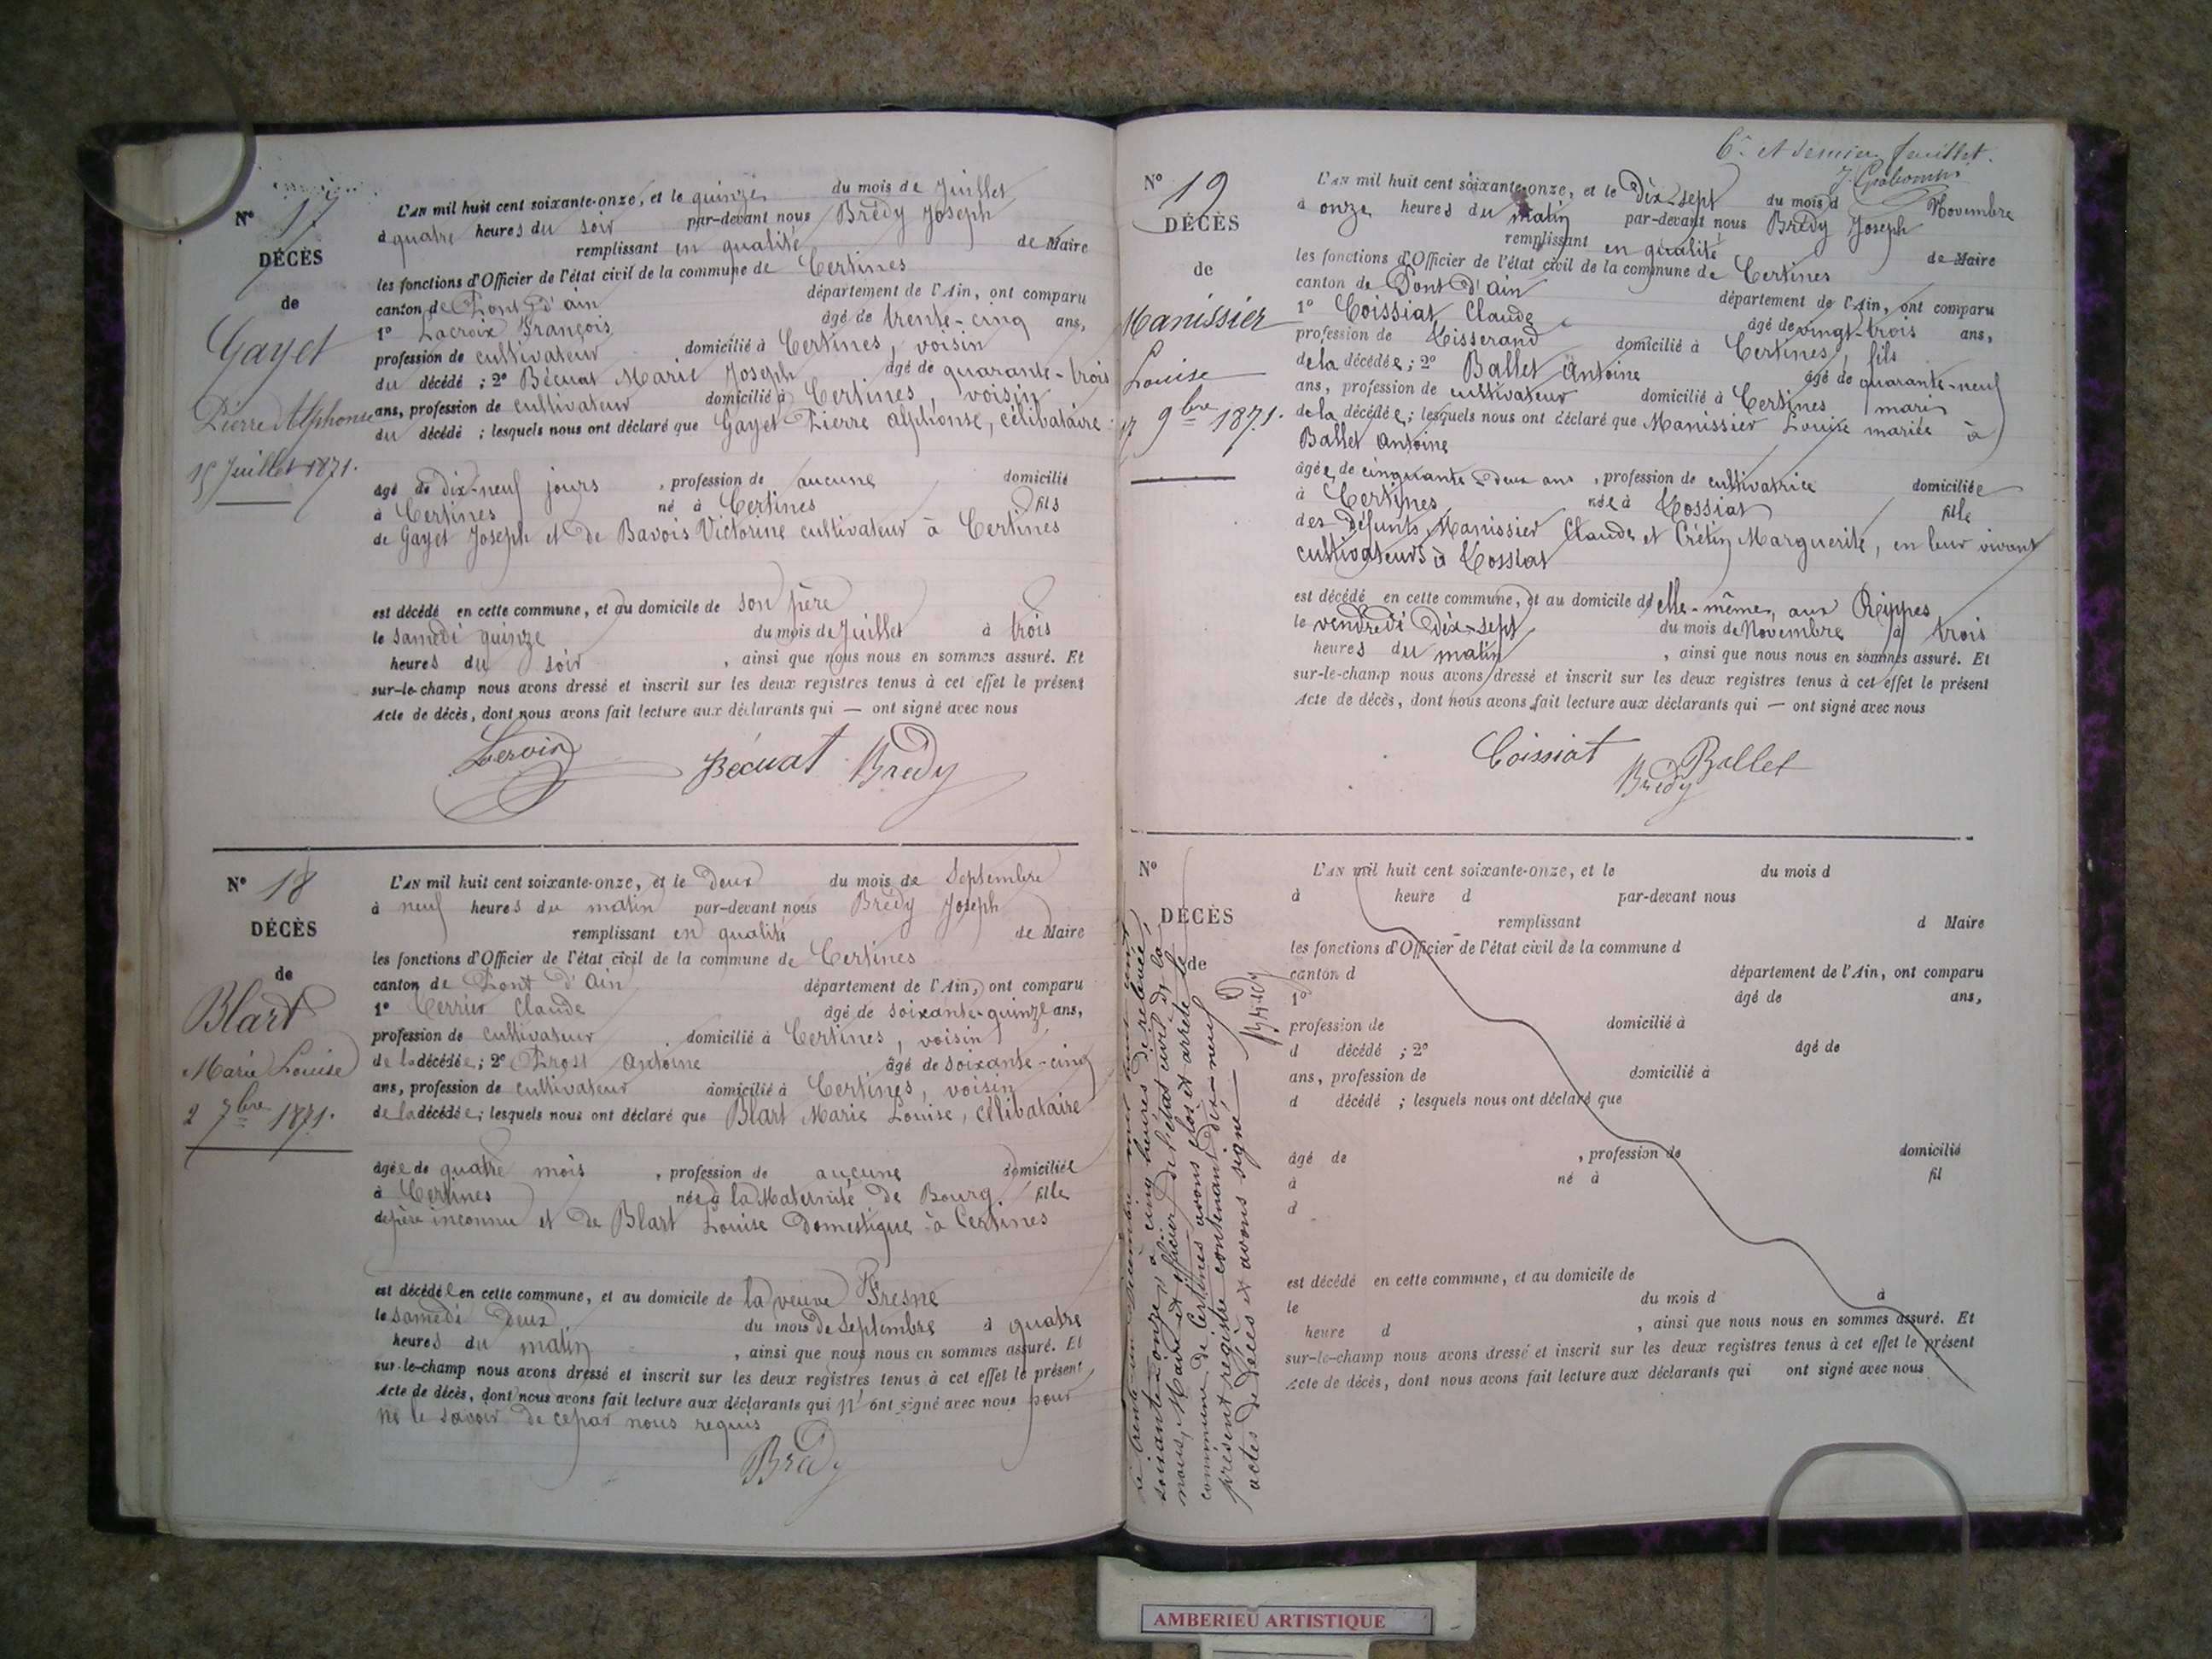 N° 17
DÉCÈS
de
Gayet
Pierre Alphonse
15 Juillet 1871.
L'AN mil huit cent soixante-onze, et le quinze du mois de Juillet
à quatre heures du soir par-devant nous Brédy Joseph
remplissant en qualité de Maire
les fonctions d'Officier de l'état civil de la commune de Certines
canton de Pont d'ain département de l'Ain, ont comparu
1° Lacroix François âgé de trente-cinq ans,
profession de cultivateur domicilié à Certines, voisin
du décédé ; 2° Bécuat Marie Joseph âgé de quarante-trois
ans, profession de cultivateur domicilié à Certines, voisin
du décédé ; lesquels nous ont déclaré que Gayet Pierre alphonse, célibataire
âgé de dix-neuf jours , profession de aucune domicilié
à Certines né à Certines fils
de Gayet Joseph et de Bavois Victorine cultivateur à Certines
est décédé en cette commune, et au domicile de son père
le samedi quinze du mois de Juillet à trois
heures du soir , ainsi que nous nous en sommes assuré. Et
sur-le-champ nous avons dressé et inscrit sur les deux registres tenus à cet effet le présent
Acte de décès, dont nous avons fait lecture aux déclarants qui — ont signé avec nous
Bécuat Brédy
N° 18
DÉCÈS
de
Blart
Marie Louise
2 7bre 1871.
L'AN mil huit cent soixante-onze, et le Deux du mois de Septembre
à neuf heures du matin par-devant nous Brédy Joseph
remplissant en qualité de Maire
les fonctions d'Officier de l'état civil de la commune de Certines
canton de Pont d'Ain département de l'Ain, ont comparu
1° Perrier Claude âgé de soixante-quinze ans,
profession de cultivateur domicilié à Certines, voisin
de la décédée ; 2° Prost Antoine âgé de soixante-cinq
ans, profession de cultivateur domicilié à Certines, voisin
de la décédée ; lesquels nous ont déclaré que Blart Marie Louise, célibataire
âgée de quatre mois , profession de aucune domiciliée
à Certines née à la Maternité de Bourg, fille
de père inconnu et de Blart Louise Domestique à Certines
est décédée en cette commune, et au domicile de la veuve Fresne
le samedi Deux du mois de Septembre à quatre
heures du matin , ainsi que nous nous en sommes assuré. Et
sur-le-champ nous avons dressé et inscrit sur les deux registres tenus à cet effet le présent
Acte de décès, dont nous avons fait lecture aux déclarants qui n'ont signé avec nous pour
ne le savoir de ce par nous requis
Brédy
6e et dernier feuillet.
N° 19
DÉCÈS
de
Manissier
Louise
17 9bre 1871.
L'AN mil huit cent soixante-onze, et le Dix-sept du mois d Novembre
à onze heures du matin par-devant nous Brédy Joseph
remplissant en qualité de Maire
les fonctions d'Officier de l'état civil de la commune de Certines
canton de Pont d'Ain département de l'Ain, ont comparu
1° Coissiat Claude âgé de vingt-trois ans,
profession de Tisserand domicilié à Certines, fils
de la décédée ; 2° Ballet Antoine âgé de quarante-neuf
ans, profession de cultivateur domicilié à Certines mari
de la décédée ; lesquels nous ont déclaré que Manissier Louise mariée à
Ballet Antoine
âgée de cinquante-Deux ans , profession de cultivatrice domiciliée
à Certines née à Tossiat fille
des Défunts Manissier Claude et Crétin Marguerite, en leur vivant
cultivateurs à Tossiat
est décédé en cette commune, et au domicile d'elle-même, aux Rippes
le vendredi Dix-sept du mois de Novembre à trois
heures du matin , ainsi que nous nous en sommes assuré. Et
sur-le-champ nous avons dressé et inscrit sur les deux registres tenus à cet effet le présent
Acte de décès, dont nous avons fait lecture aux déclarants qui — ont signé avec nous
Coissiat Ballet
Brédy
N°
DÉCÈS
de
L'AN mil huit cent soixante-onze, et le du mois d
à heure d par-devant nous
remplissant d Maire
les fonctions d'Officier de l'état civil de la commune d
canton d département de l'Ain, ont comparu
1° âgé de ans,
profession de domicilié à
d décédé ; 2° âgé de
ans, profession de domicilié à
d décédé ; lesquels nous ont déclaré que
âgé de , profession de domicilié
à né à fil
d
est décédé en cette commune, et au domicile de
le du mois d à
heure d , ainsi que nous nous en sommes assuré. Et
sur-le-champ nous avons dressé et inscrit sur les deux registres tenus à cet effet le présent
Acte de décès, dont nous avons fait lecture aux déclarants qui ont signé avec nous
Le trente-un Décembre mil huit cent
soixante-onze, à cinq heures de relevée,
nous, Maire et officier de l'état civil de la
commune de Certines avons clos et arrêté le
présent registre contenant dix-neuf
actes de décès et avons signé
Brédy
AMBERIEU ARTISTIQUE